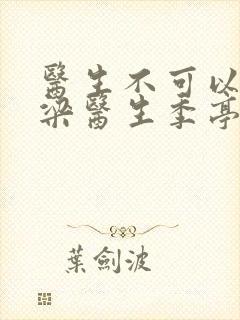 醫生不可以
梁醫生季亭
葉劍波